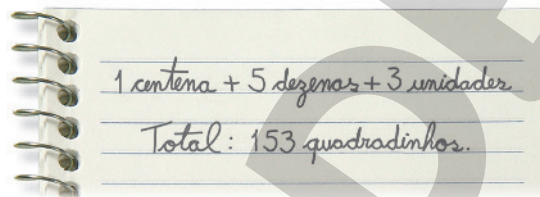 1 centena + 5 dezenas + 3 unidades
Total: 153 quadradinhos.